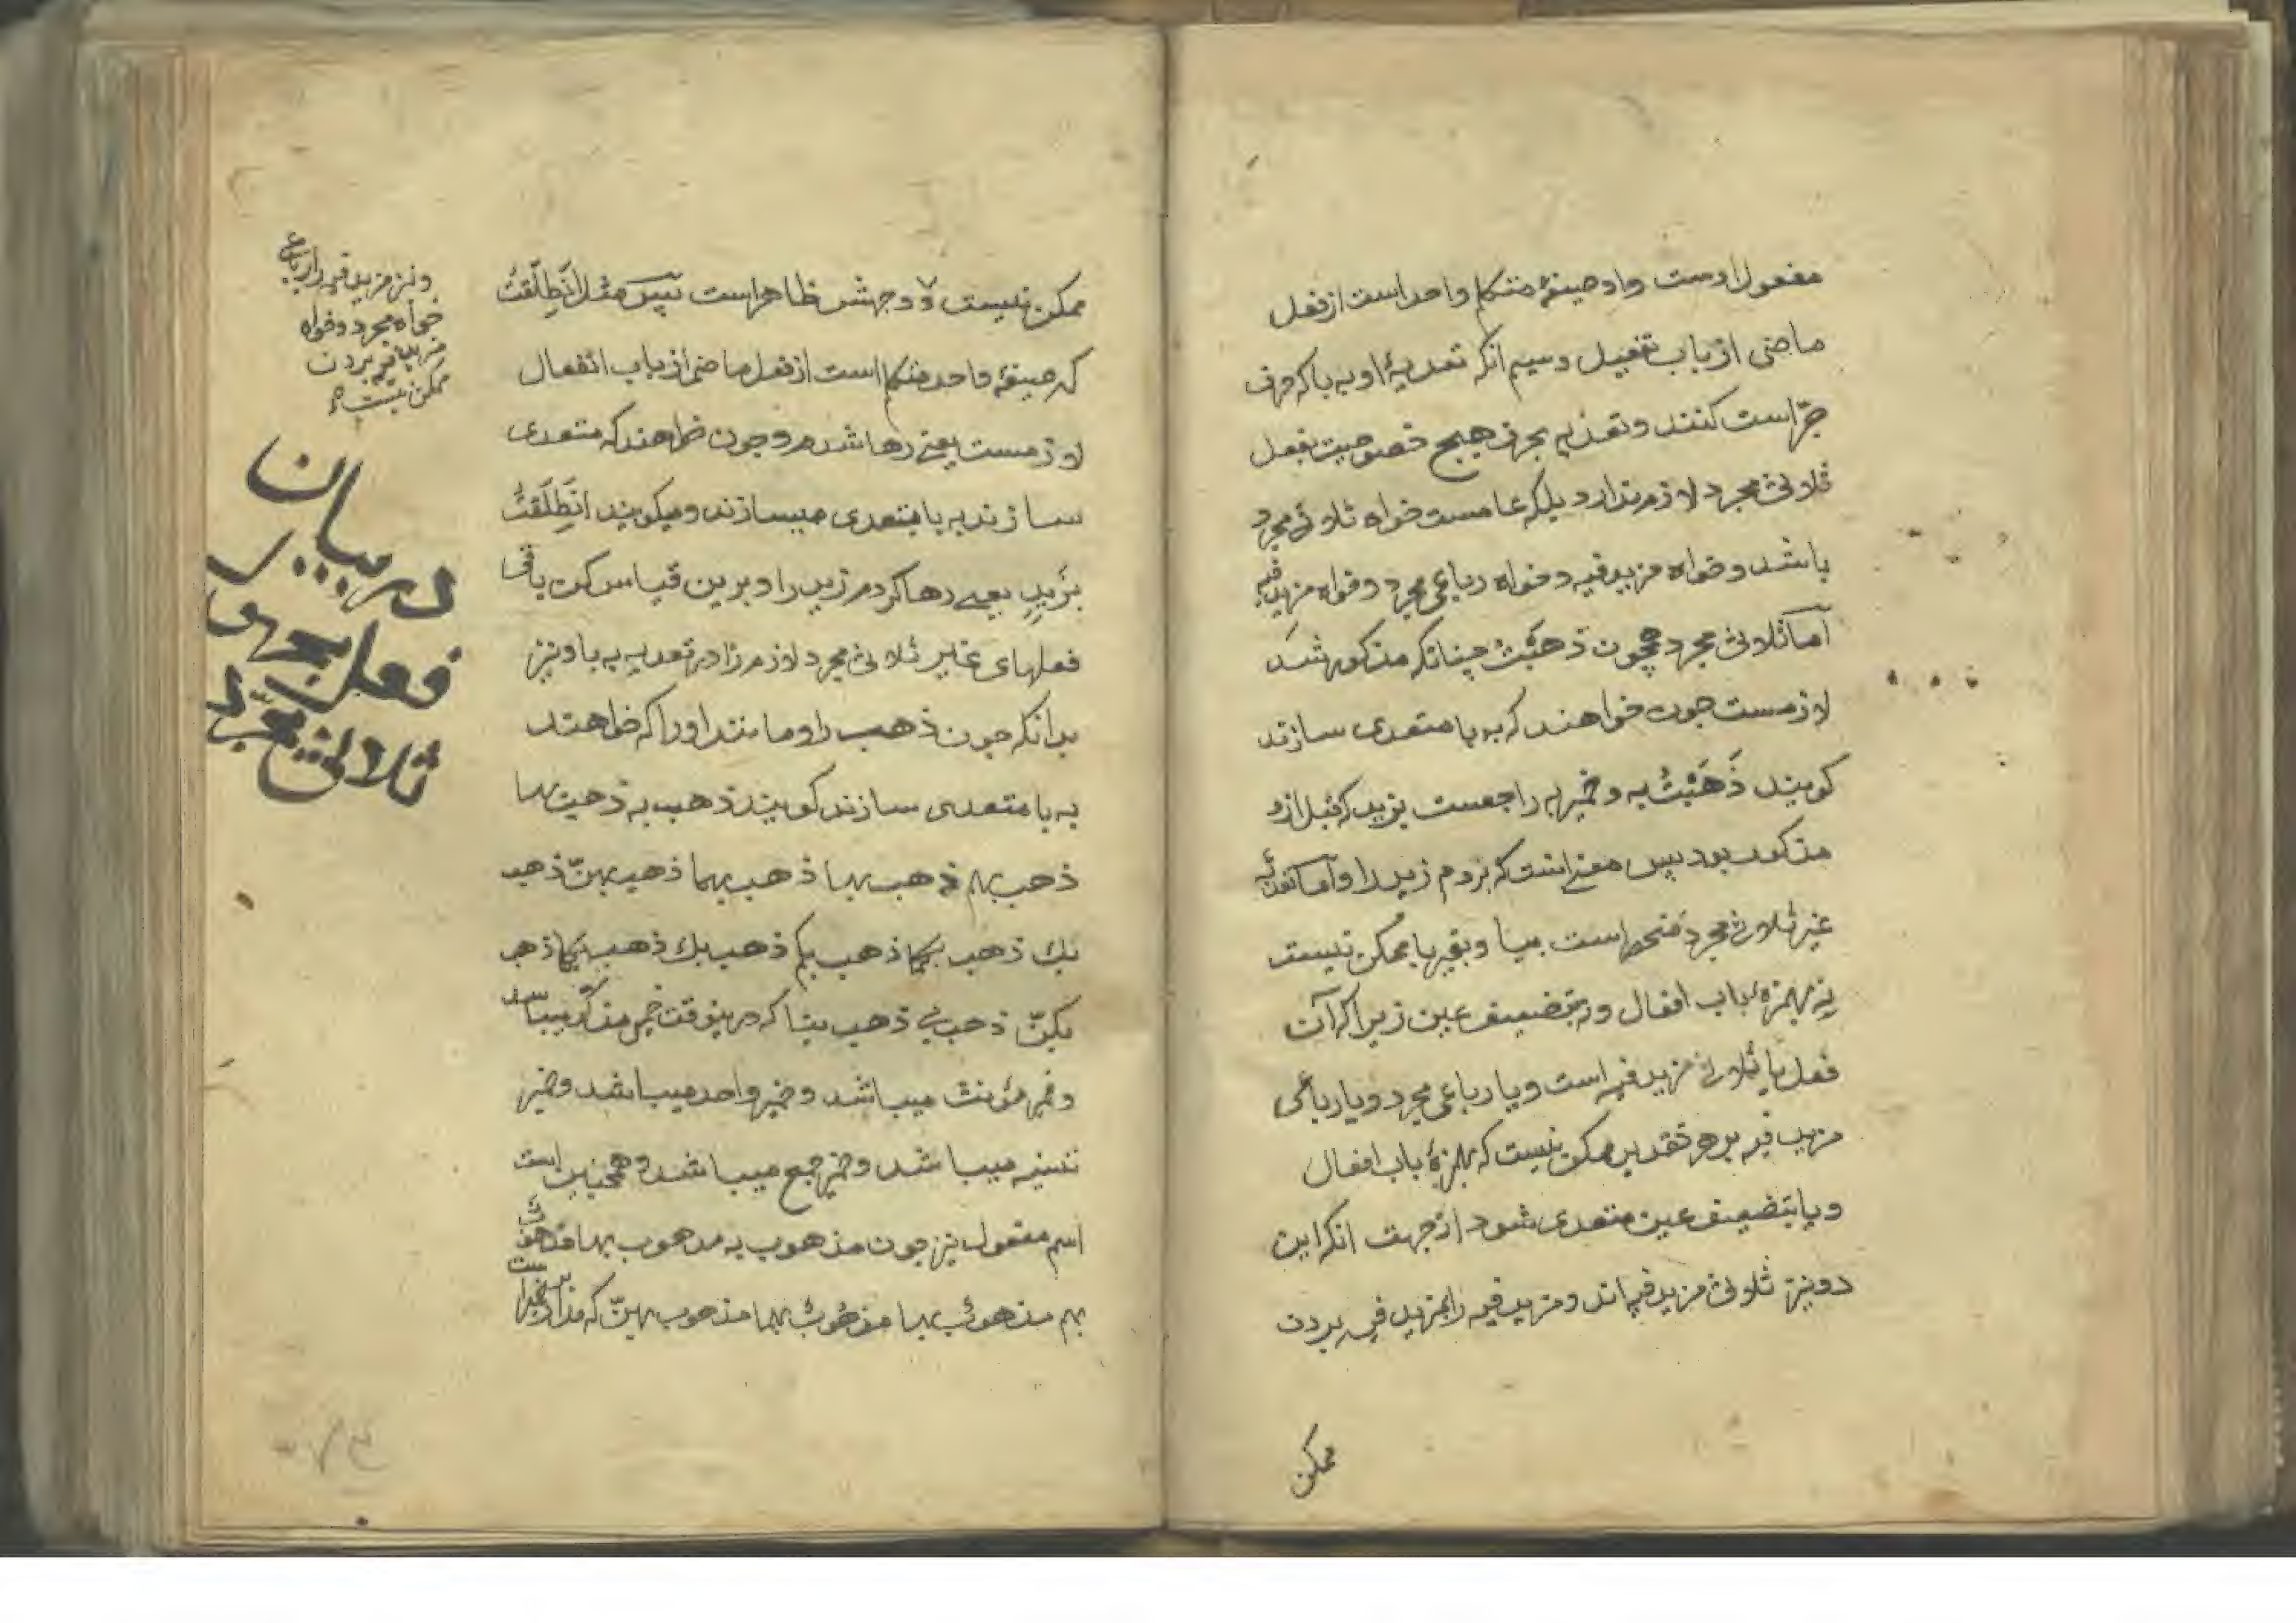 مفعول اوست واو صیغهٔ متکلم واحد است از فعل
ماضی از باب تفعیل وسیم انکه تعدیهٔ او به با که حرف
جرّ است کنند وتعدیه بحرف هیچ خصوصیت بفعل
ثلاثی مجرد لازم ندارد بلکه عامست خواه ثلاثی مجرد
باشد وخواه مزید فیه وخواه رباعی مجرد وخواه مزید فیه
اما ثلاثی مجرد همچون ذهبت چنانکه مذکور شد
لازمست چون خواهند که به با متعدی سازند
کویند ذَهَبْتُ به وضمیر به راجعست بزید که قبل ازو
مذکور بود پس معنی انست که بردم زید را واما تعدیهٔ
غیر ثلاثی مجرد منحصر است ببا وبغیر با ممکن نیست
نه بهمزهٔ باب افعال ونه بتضعیف عین زیرا که آن
فعل یا ثلاثی مزید فیه است ویا رباعی مجرد ویا رباعی
مزید فیه بر هر تقدیر ممکن نیست که بهمزهٔ باب افعال
ویا بتضعیف عین متعدی شود از جهت انکه این
دو نیز ثلاثی مزید فیه اند ومزید فیه را بمزید فیه بردن
ممکن
ممکن نیست ووجهش ظاهر است پس مثل انْطَلَقْتُ
که صیغهٔ واحد متکلم است از فعل ماضی از باب انفعال
لازمست یعنی رها شدم وچون خواهند که متعدی
سازند به با متعدی میسازند ومیکویند انْطَلَقْتُ
بزَیدٍ یعنی رها کردم زید را وبرین قیاس کن باقی
فعلهای غیر ثلاثی مجرد لازم را در تعدیه به با ونیز
بدانکه چون ذهب را ومانند او را که خواهند
به با متعدی سازند کویند ذهب به ذهب بهما
ذهب بهم ذهب بها ذهب بهما ذهب بهنّ ذهب
بك ذهب بکما ذهب بکم ذهب بك ذهب بکما ذهب
بکنّ ذهب بی ذهب بنا که درینوقت ضمیر مذکر میباشد
وضمیر مؤنث میباشد وضمیر واحد میباشد وضمیر
تثنیه میباشد وضمیر جمع میباشد وهمچنین است
اسم مفعول نیز چون مذهوب به مذهوب بهما مذهوب
بهم مذهوب بها مذهوب بهما مذهوب بهنّ که
ونیز مزید فیه را رباعی
خواه مجرد وخواه
مزید فیه بردن
ممکن نیست
در بیان
فعل مجهول
ثلاثی مجرد